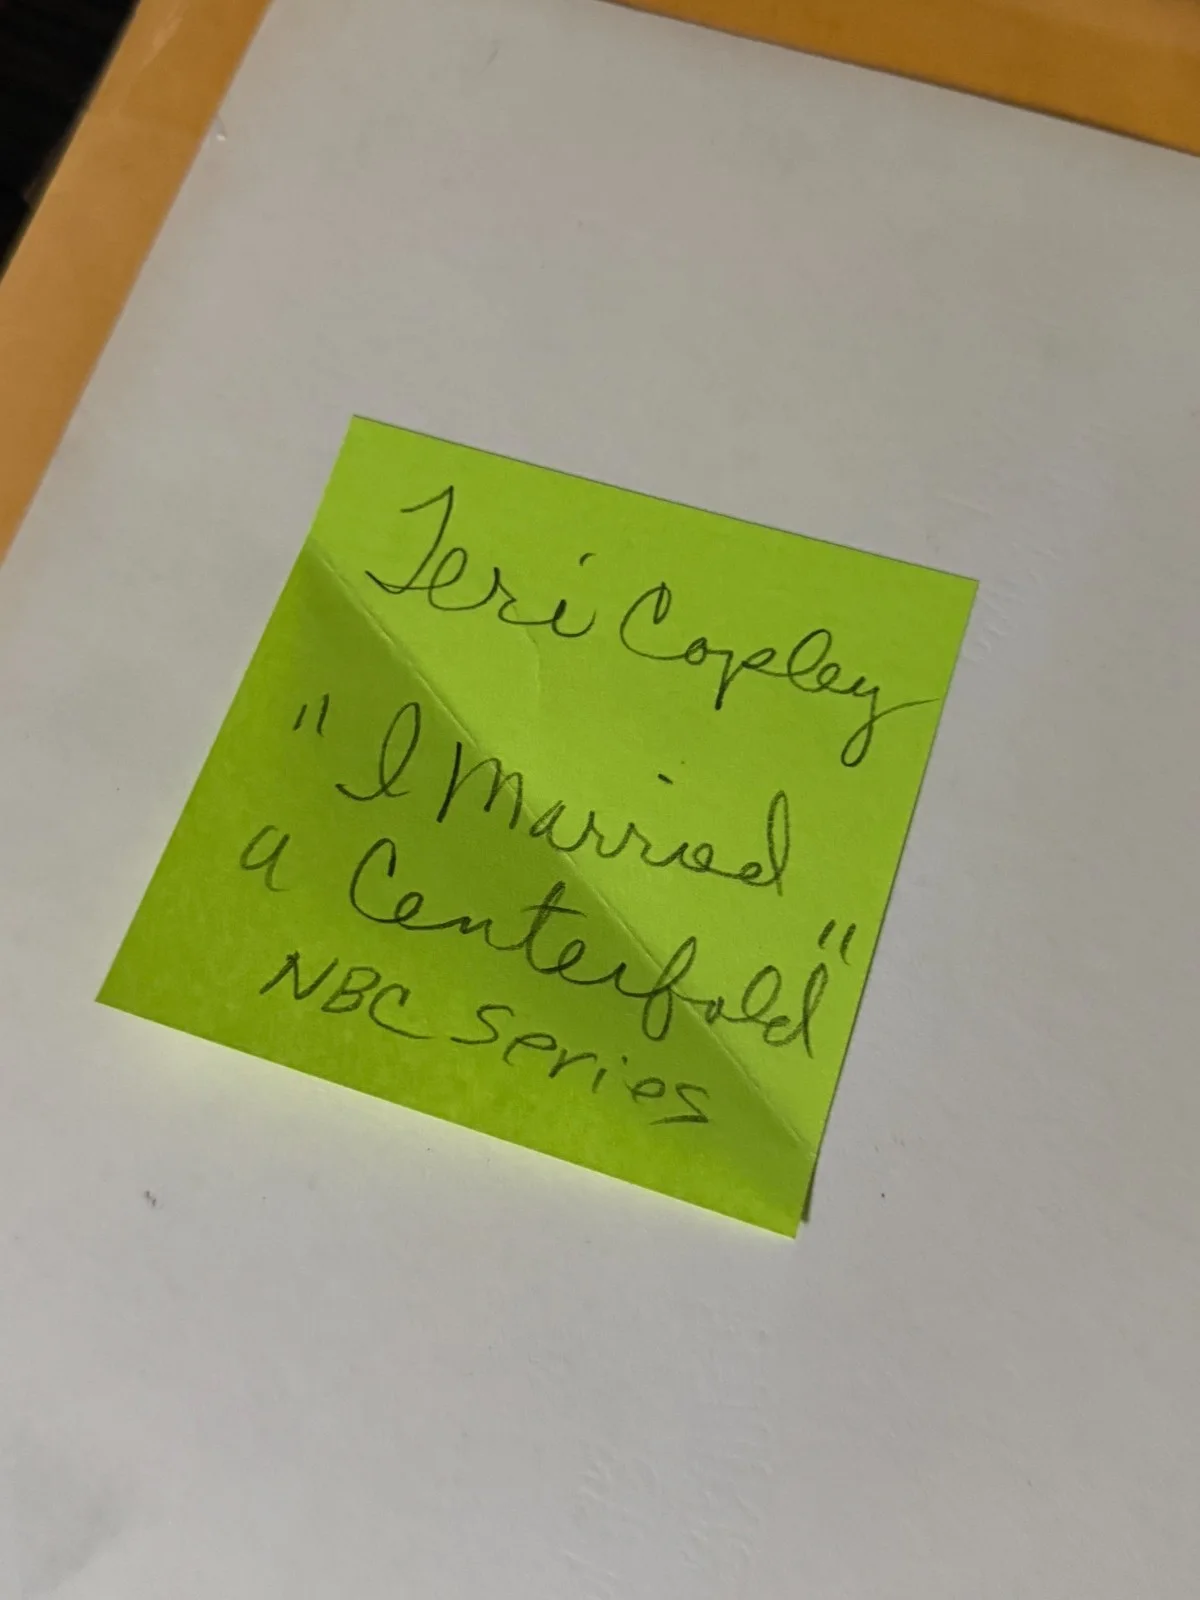 Teri Copley
"I Married
a Centerfold"
NBC series